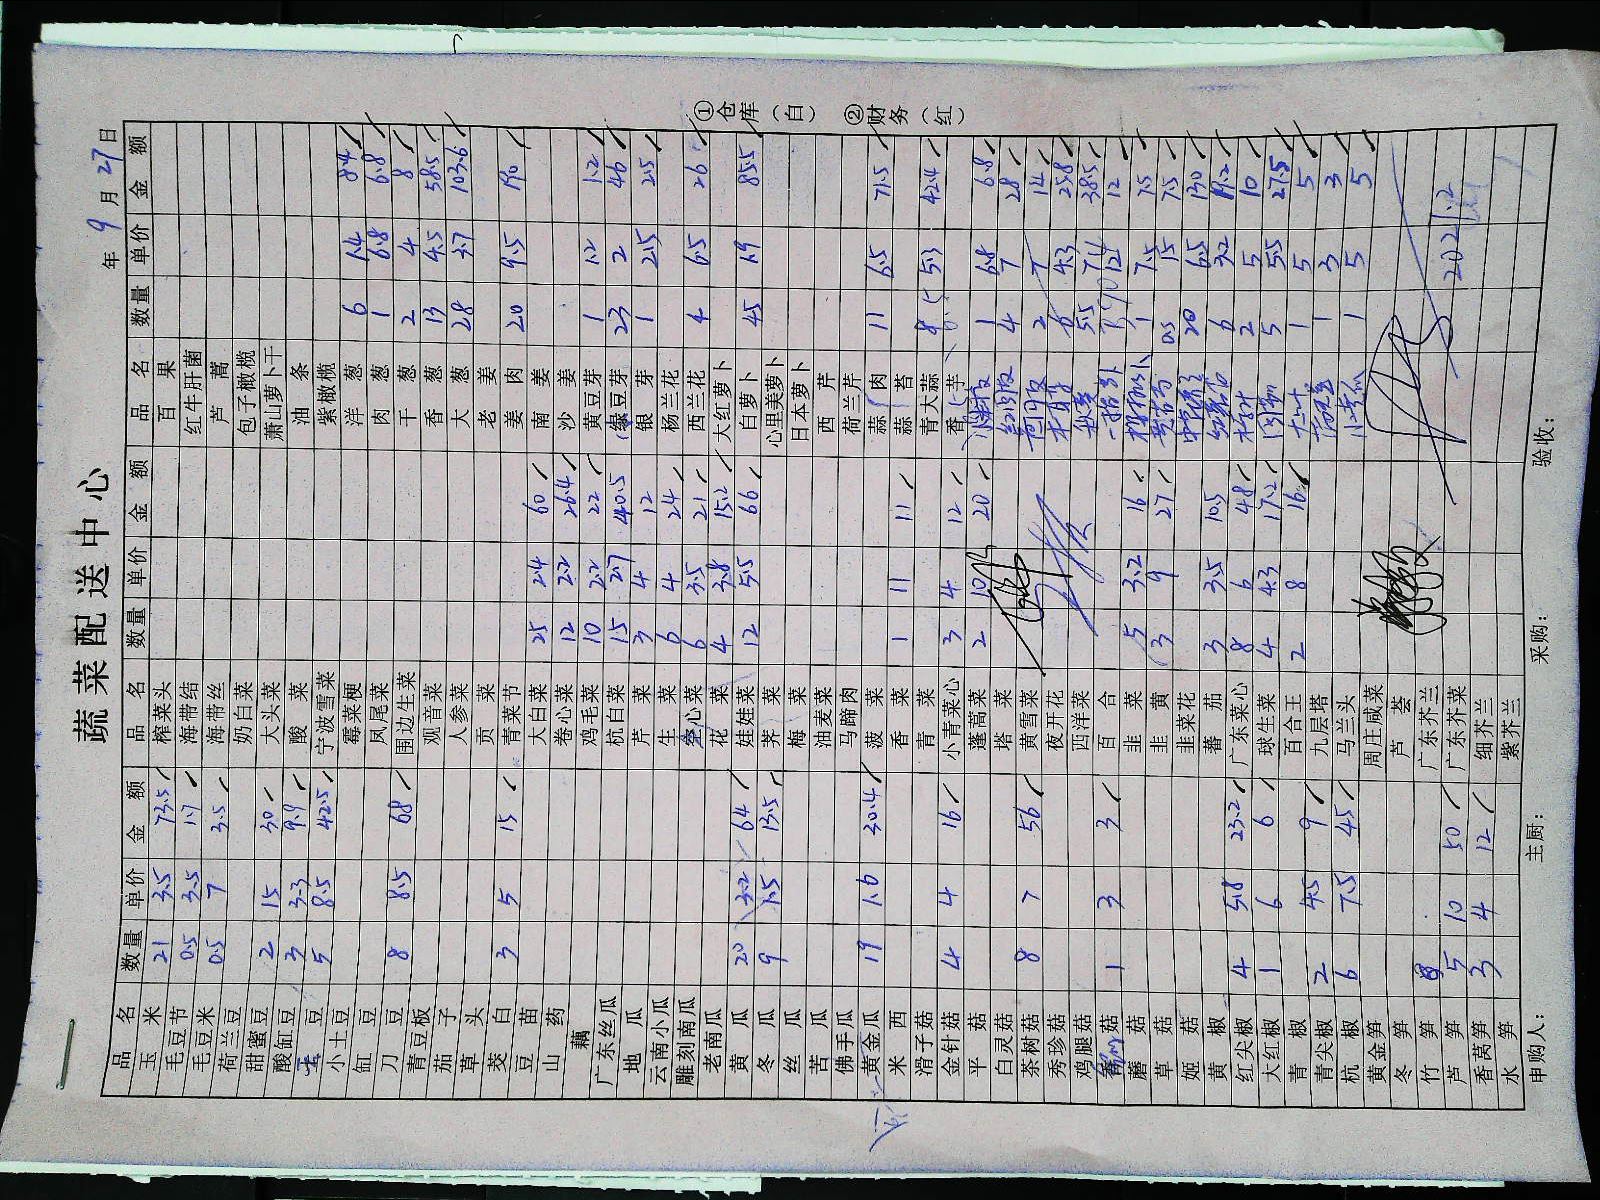 蔬菜配送中心
年 9 月 27 日
品名 数量 单价 金额 品名 数量 单价 金额 品名 数量 单价 金额
玉米 21 3.5 73.5 榨菜头 百果
毛豆节 0.5 3.5 1.7 海带结 红牛肝菌
毛豆米 0.5 7 3.5 海带丝 芦蒿
荷兰豆 奶白菜 包子橄榄
甜蜜豆 2 15 30 大头菜 萧山萝卜干
酸缸豆 3 3.3 9.9 酸菜 油条
豆 5 8.5 42.5 宁波雪菜 紫橄榄
小土豆 霉菜梗 洋葱 6 1.4 8.4
缸豆 凤尾菜 肉葱 1 6.8 6.8
刀豆 8 8.5 68 围边生菜 干葱 2 4 8
青豆板 观音菜 香葱 13 4.5 58.5
茄子 人参菜 大葱 28 3.7 103.6
草头 贡菜 老姜
茭白 3 5 15 青菜节 姜肉 20 9.5 190
豆苗 大白菜 25 2.4 60 南姜
山药 卷心菜 12 2.2 26.4 沙姜
藕 鸡毛菜 10 2.2 22 黄豆芽 1 1.2 1.2
广东丝瓜 杭白菜 15 2.7 40.5 绿豆芽 23 2 46
地瓜 芹菜 3 4 12 银芽 1 2.5 2.5
云南小瓜 生菜 6 4 24 杨兰花
雕刻南瓜 空心菜 6 3.5 21 西兰花 4 6.5 26
老南瓜 花菜 4 3.8 15.2 大红萝卜
黄瓜 20 3.2 64 娃娃菜 12 5.5 66 白萝卜 45 1.9 85.5
冬瓜 9 1.5 13.5 荠菜 心里美萝卜
丝瓜 梅菜 日本萝卜
苦瓜 油麦菜 西芹
佛手瓜 马蹄肉 荷兰芹
黄金瓜 19 1.6 30.4 菠菜 蒜肉 11 6.5 71.5
米西 香菜 1 11 11 蒜苔
滑子菇 青菜 青大蒜 8 5.3 42.4
金针菇 4 4 16 小青菜心 3 4 12 香芋
平菇 蓬蒿菜 2 10 20 1 6.8 6.8
白灵菇 塔菜 4 7 28
茶树菇 8 7 56 黄雪菜 2 7 14
秀珍菇 夜开花 6 4.3 25.8
鸡腿菇 西洋菜 秋葵 5.5 7 38.5
菇 1 3 3 百合 12 12
蘑菇 韭菜 5 3.2 16 1 7.5 7.5
草菇 韭黄 3 9 27 0.5 15 7.5
姬菇 韭菜花 20 6.5 130
黄椒 蕃茄 3 3.5 10.5 6 3.2 19.2
红尖椒 4 5.8 23.2 广东菜心 8 6 48 2 5 10
大红椒 1 6 6 球生菜 4 4.3 17.2 5 5.5 27.5
青椒 百合王 2 8 16 1 5 5
青尖椒 2 4.5 9 九层塔 1 3 3
杭椒 6 7.5 45 马兰头 1 5 5
黄金笋 周庄咸菜
冬笋 芦荟
竹笋 广东芥兰
芦笋 5 10 50 广东芥菜 2021.2
香莴笋 3 4 12 细芥兰
水笋 紫芥兰
申购人： 主厨： 采购： 验收：
①仓库（白） ②财务（红）